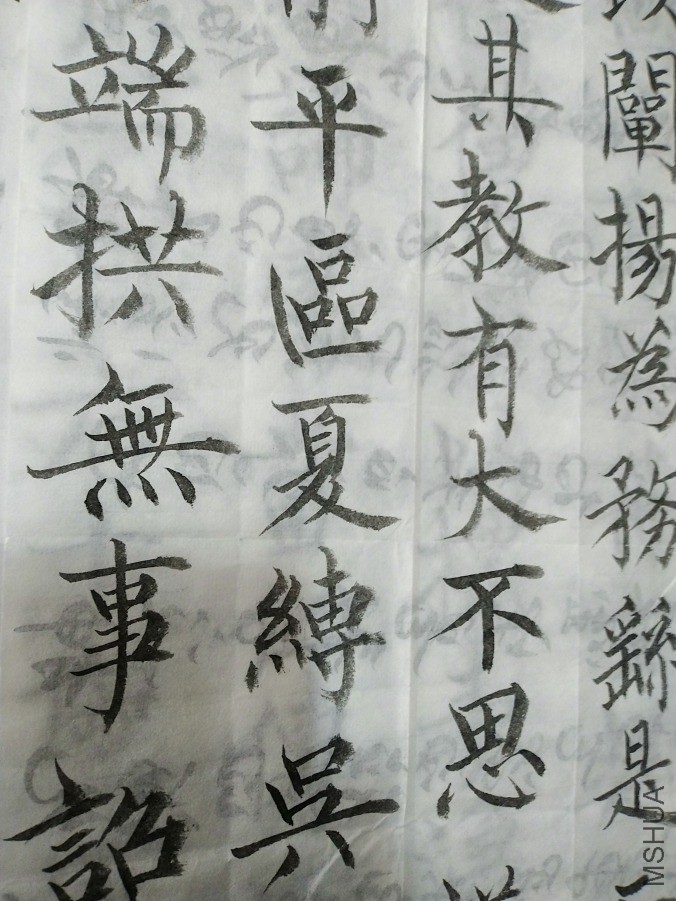 闡揚為務繇是
其教有大不思
平區夏縛吳
端拱無事詔
MSHUA